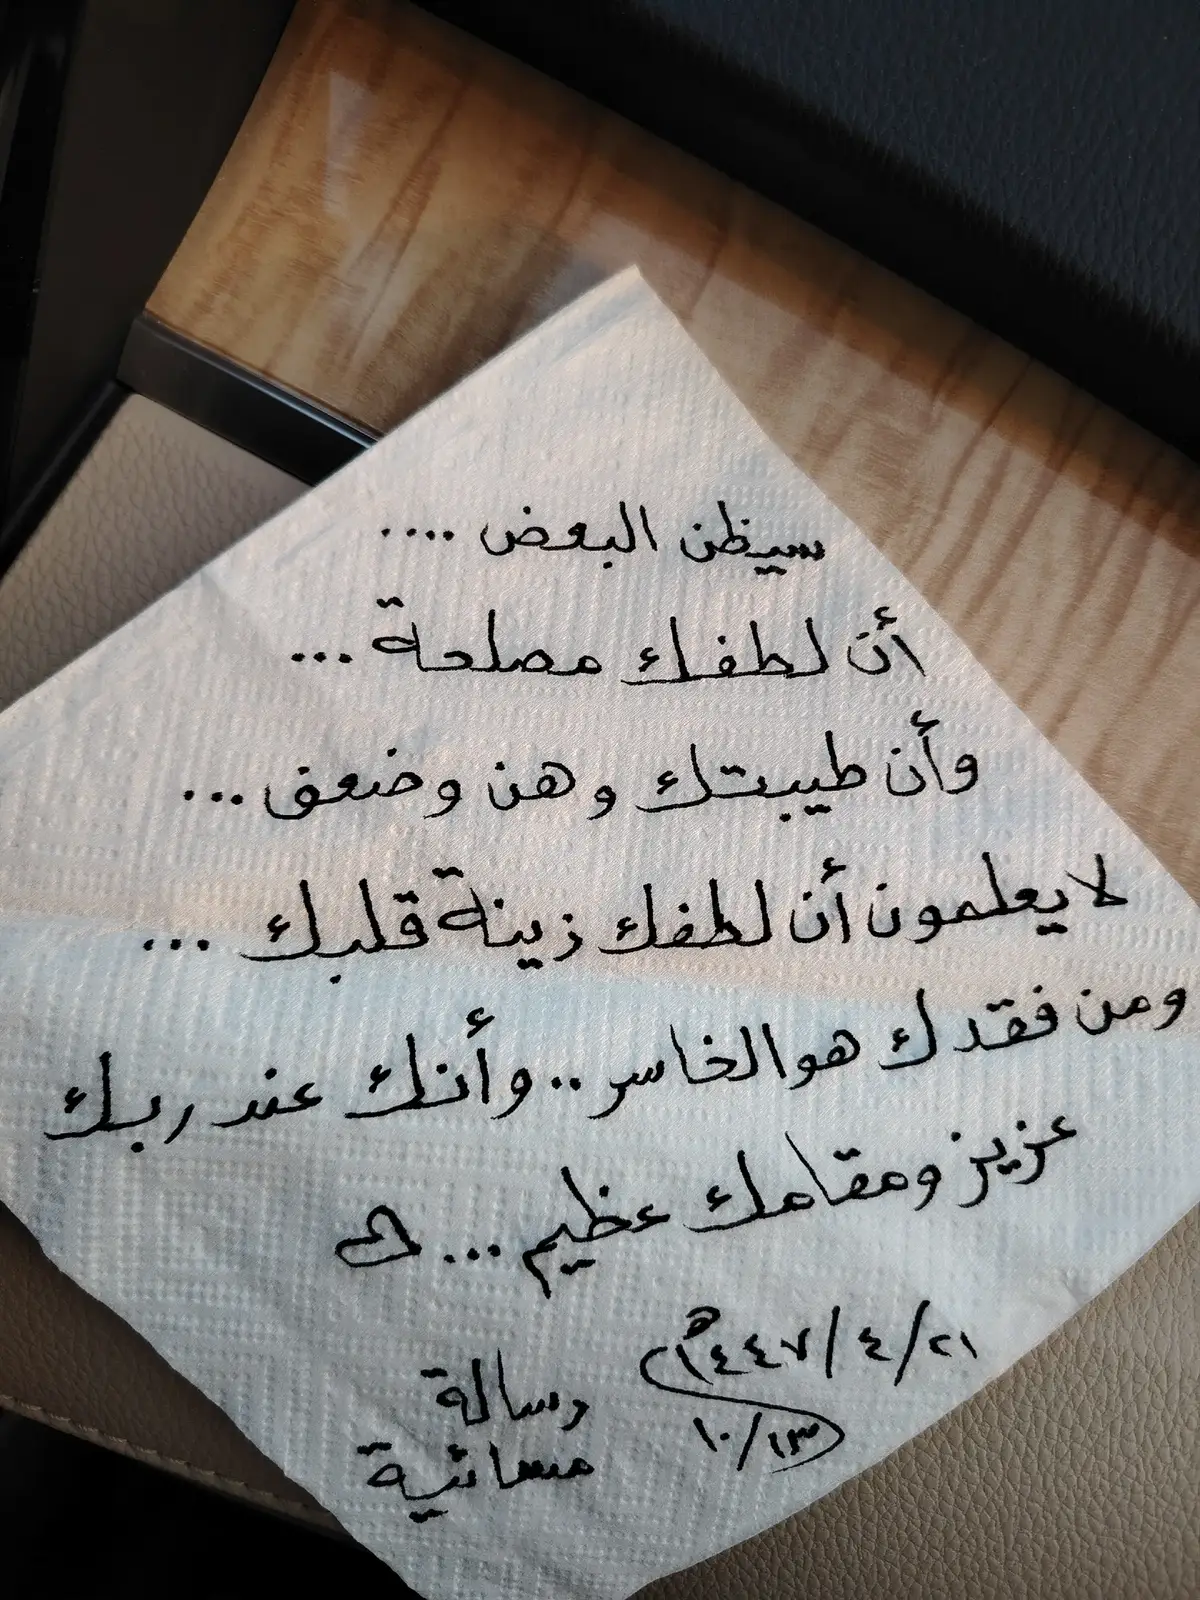 سيظن البعض ....
أن لطفك مصلحة ...
وأن طيبتك وهن وضعف ...
لا يعلمون أن لطفك زينة قلبك ...
ومن فقدك هو الخاسر .. وأنك عند ربك
عزيز ومقامك عظيم ...
٢١/٤/١٤٤٧هـ
١٠/١٣
رسالة
مسائية